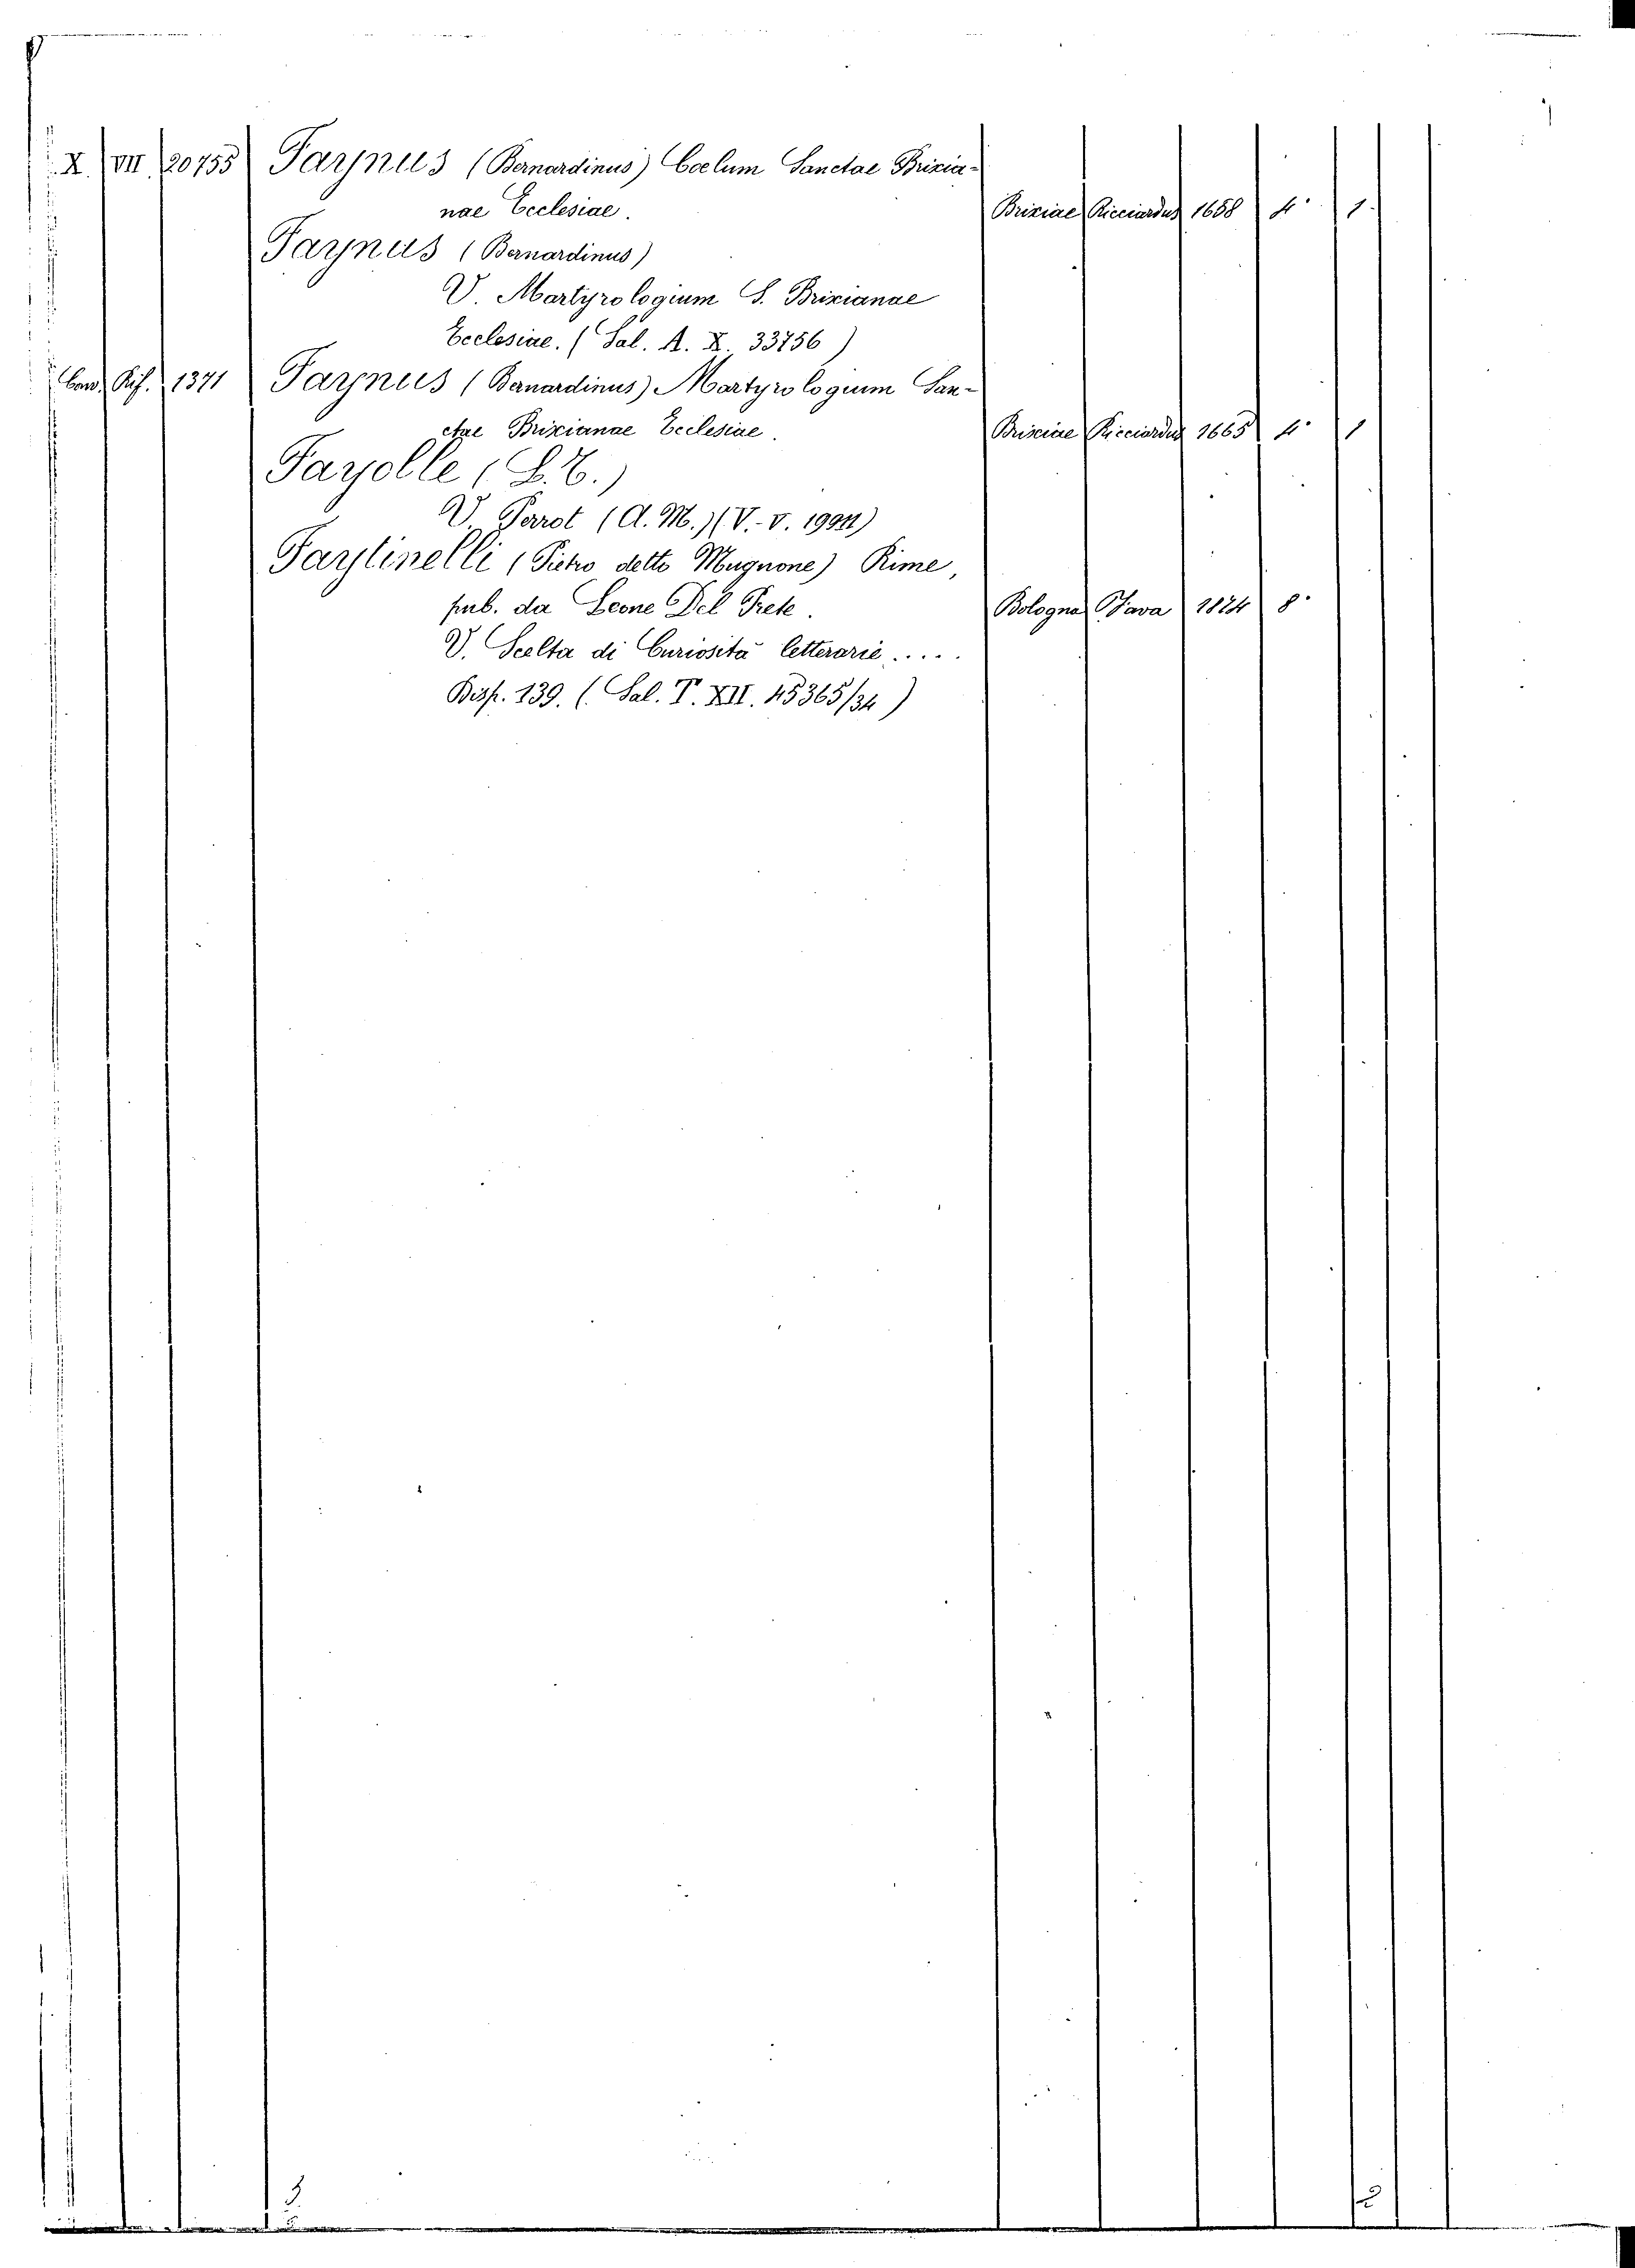 X. VII. 20755 Faynus (Bernardinus) Coelum Sanctae Brixia-
nae Ecclesiae. Brixiae Ricciardus 1658 4° 1.
Faynus (Bernardinus)
V. Martyrologium S. Brixianae
Ecclesiae. (Sal. A. X. 33756)
Rif. 1371 Faynus (Bernardinus) Martyrologium San-
ctae Brixianae Ecclesiae. Brixiae Ricciardus 1665 4° 1
Fayolle
V. Perrot (A. M.) (V. V.
Faytinelli (Pietro detto Mugnone) Rime,
pub. da Leone Del Prete. Bologna Fava 1874 8°
V. Scelta di Curiosità letterarie.....
Disp. 139. (Sal. T. XII. 45365/34)
3. 2